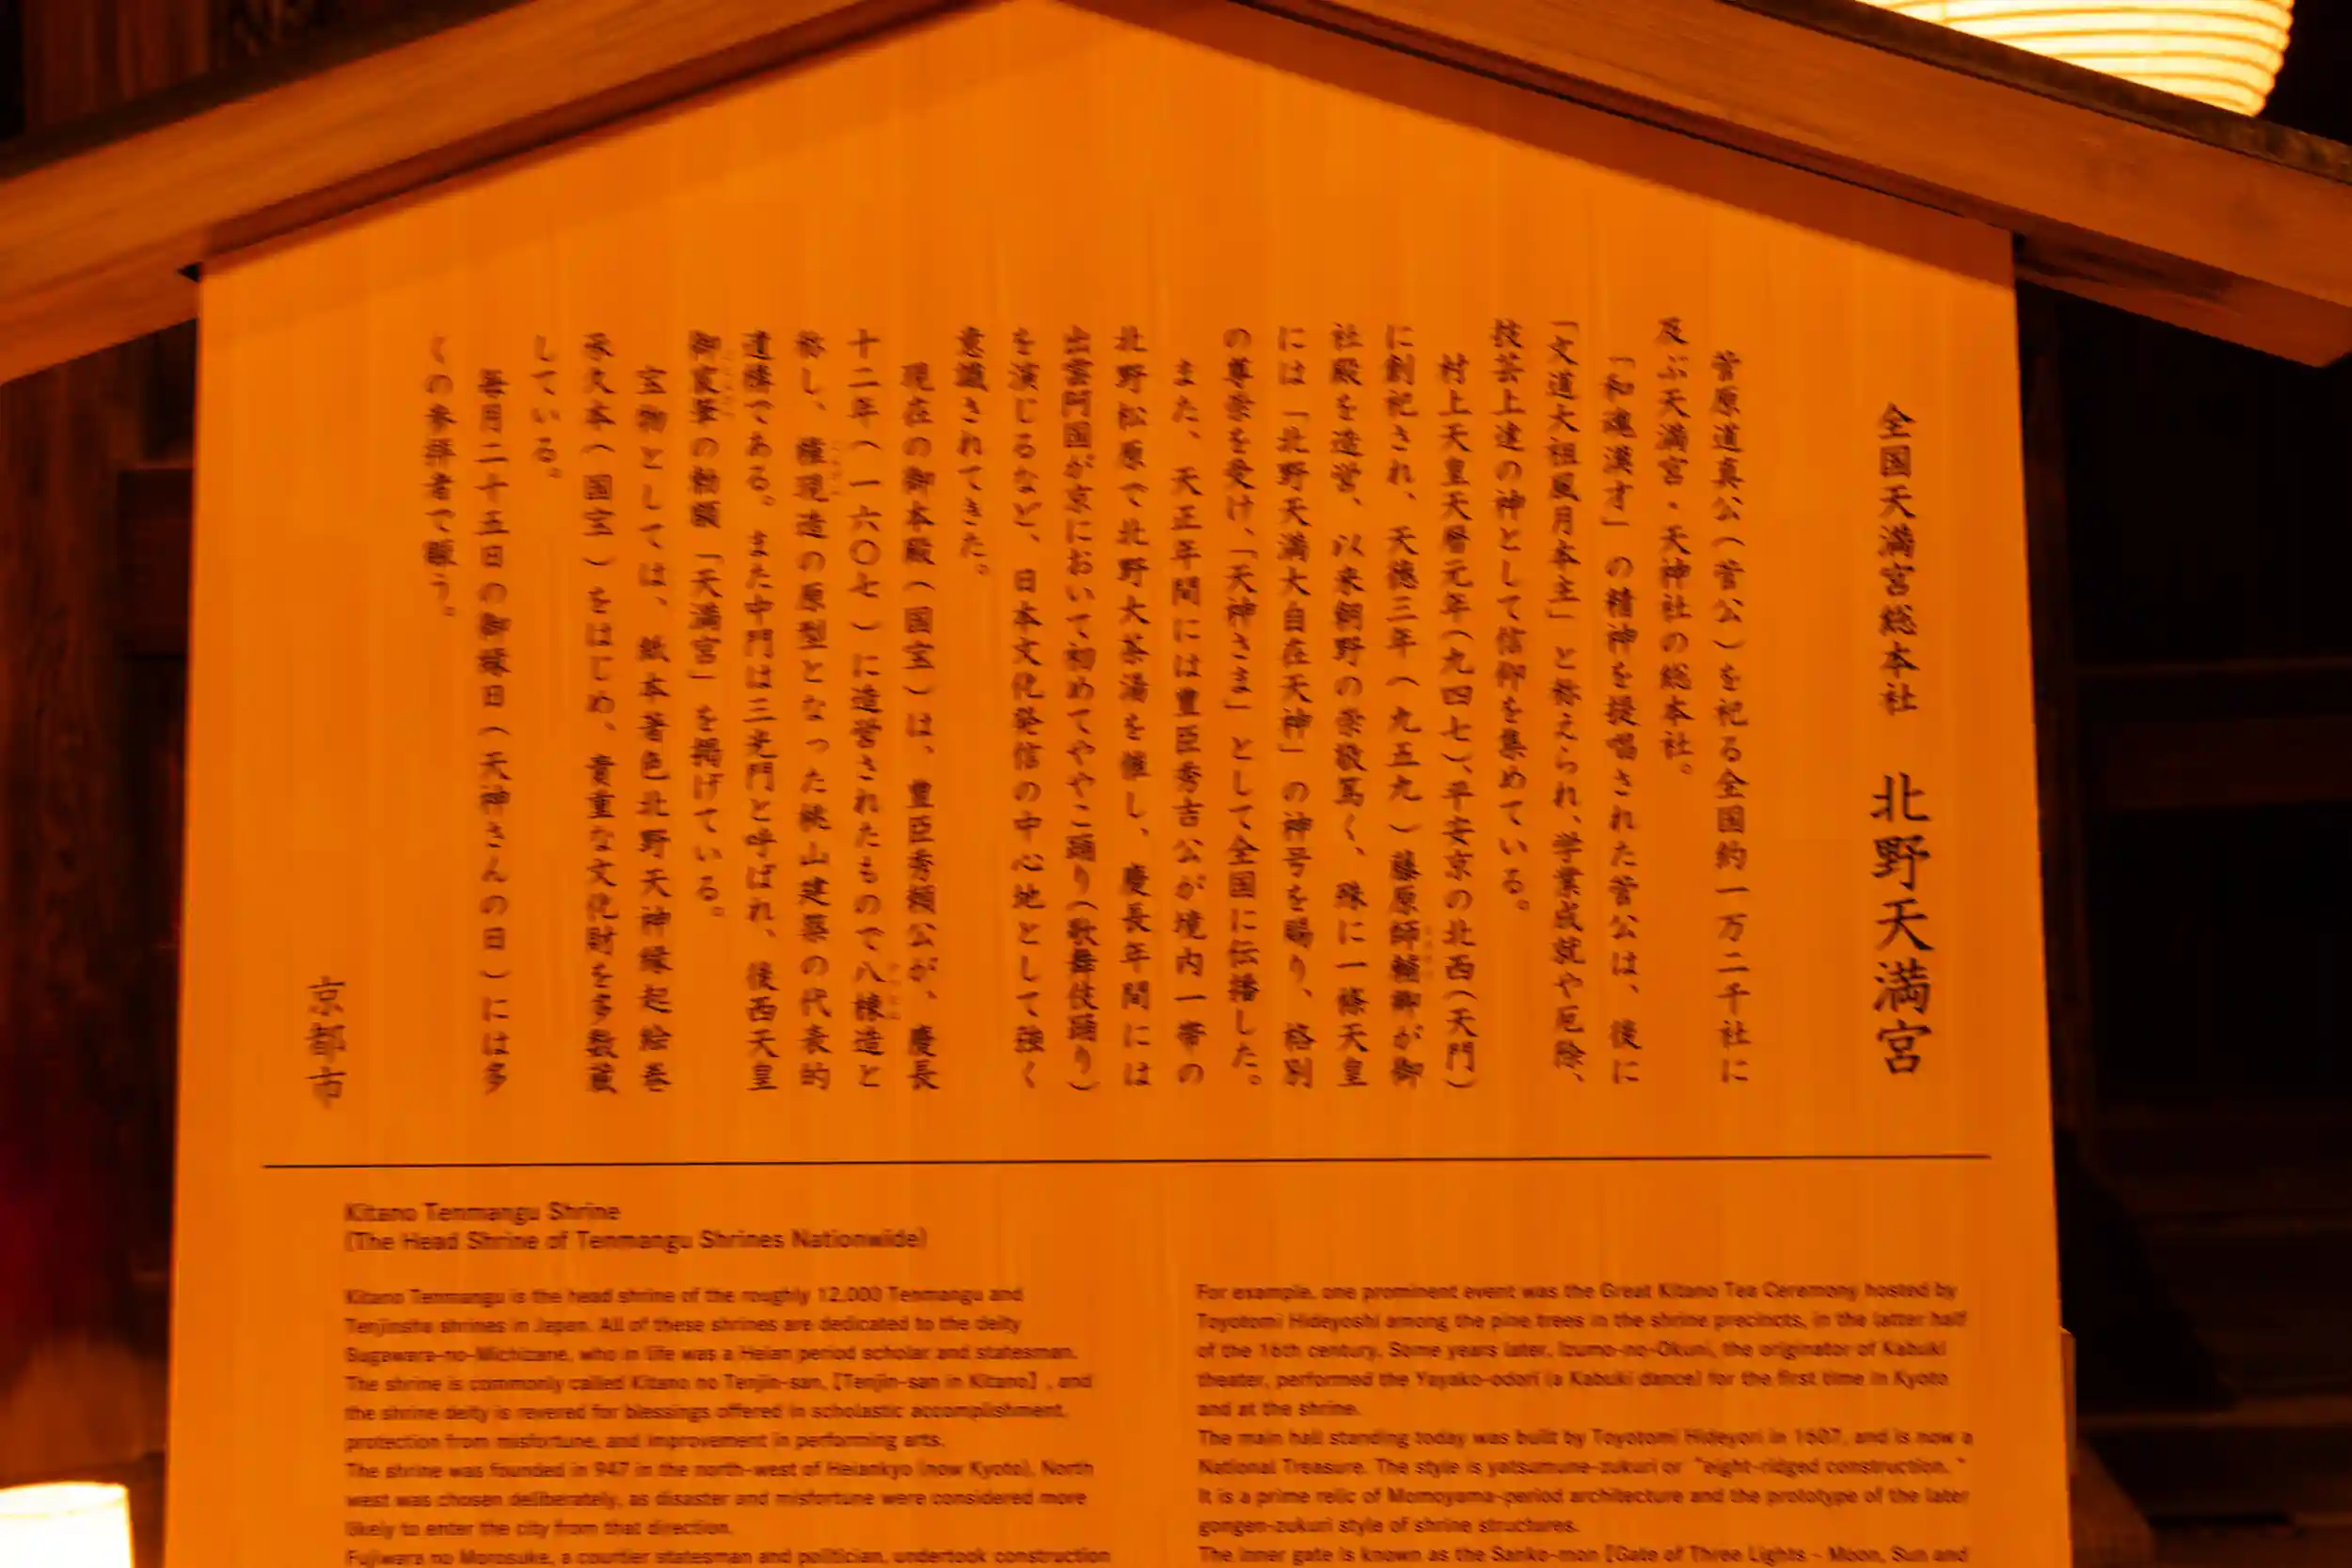 全国天満宮総本社 北野天満宮
菅原道真公(菅公)を祀る全国約一万二千社に
及ぶ天満宮・天神社の総本社。
「和魂漢才」の精神を提唱された菅公は、後に
「文道大祖風月本主」と称えられ、学業成就や厄除、
技芸上達の神として信仰を集めている。
村上天皇天暦元年(九四七)、平安京の北西(天門)
に創祀され、天徳三年(九五九)藤原師輔卿が御
社殿を造営、以来朝野の崇敬篤く、殊に一條天皇
には「北野天満大自在天神」の神号を賜り、格別
の尊崇を受け、「天神さま」として全国に伝播した。
また、天正年間には豊臣秀吉公が境内一帯の
北野松原で北野大茶湯を催し、慶長年間には
出雲阿国が京において初めてややこ踊り(歌舞伎踊り)
を演じるなど、日本文化発信の中心地として強く
意識されてきた。
現在の御本殿(国宝)は、豊臣秀頼公が、慶長
十二年(一六〇七)に造営されたもので八棟造と
称し、権現造の原型となった桃山建築の代表的
遺構である。また中門は三光門と呼ばれ、後西天皇
御宸筆の勅額「天満宮」を掲げている。
宝物としては、紙本著色北野天神縁起絵巻
承久本(国宝)をはじめ、貴重な文化財を多数蔵
している。
毎月二十五日の御縁日(天神さんの日)には多
くの参拝者で賑う。
京都市
Kitano Tenmangu Shrine
(The Head Shrine of Tenmangu Shrines Nationwide)
Kitano Tenmangu is the head shrine of the roughly 12,000 Tenmangu and
Tenjinsha shrines in Japan. All of these shrines are dedicated to the deity
Sugawara-no-Michizane, who in life was a Heian period scholar and statesman.
The shrine is commonly called Kitano no Tenjin-san, [Tenjin-san in Kitano] , and
the shrine deity is revered for blessings offered in scholastic accomplishment,
protection from misfortune, and improvement in performing arts.
The shrine was founded in 947 in the north-west of Heiankyo (now Kyoto). North
west was chosen deliberately, as disaster and misfortune were considered more
likely to enter the city from that direction.
Fujiwara no Morosuke, a courtier statesman and politician, undertook construction
For example, one prominent event was the Great Kitano Tea Ceremony hosted by
Toyotomi Hideyoshi among the pine trees in the shrine precincts, in the latter half
of the 16th century. Some years later, Izumo-no-Okuni, the originator of Kabuki
theater, performed the Yayako-odori (a Kabuki dance) for the first time in Kyoto
and at the shrine.
The main hall standing today was built by Toyotomi Hideyori in 1607, and is now a
National Treasure. The style is yatsumune-zukuri or "eight-ridged construction. "
It is a prime relic of Momoyama-period architecture and the prototype of the later
gongen-zukuri style of shrine structures.
The inner gate is known as the Sanko-mon [Gate of Three Lights - Moon, Sun and